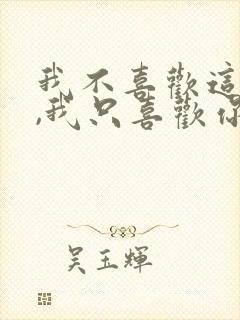 我不喜歡這
,我只喜歡你
吳玉輝